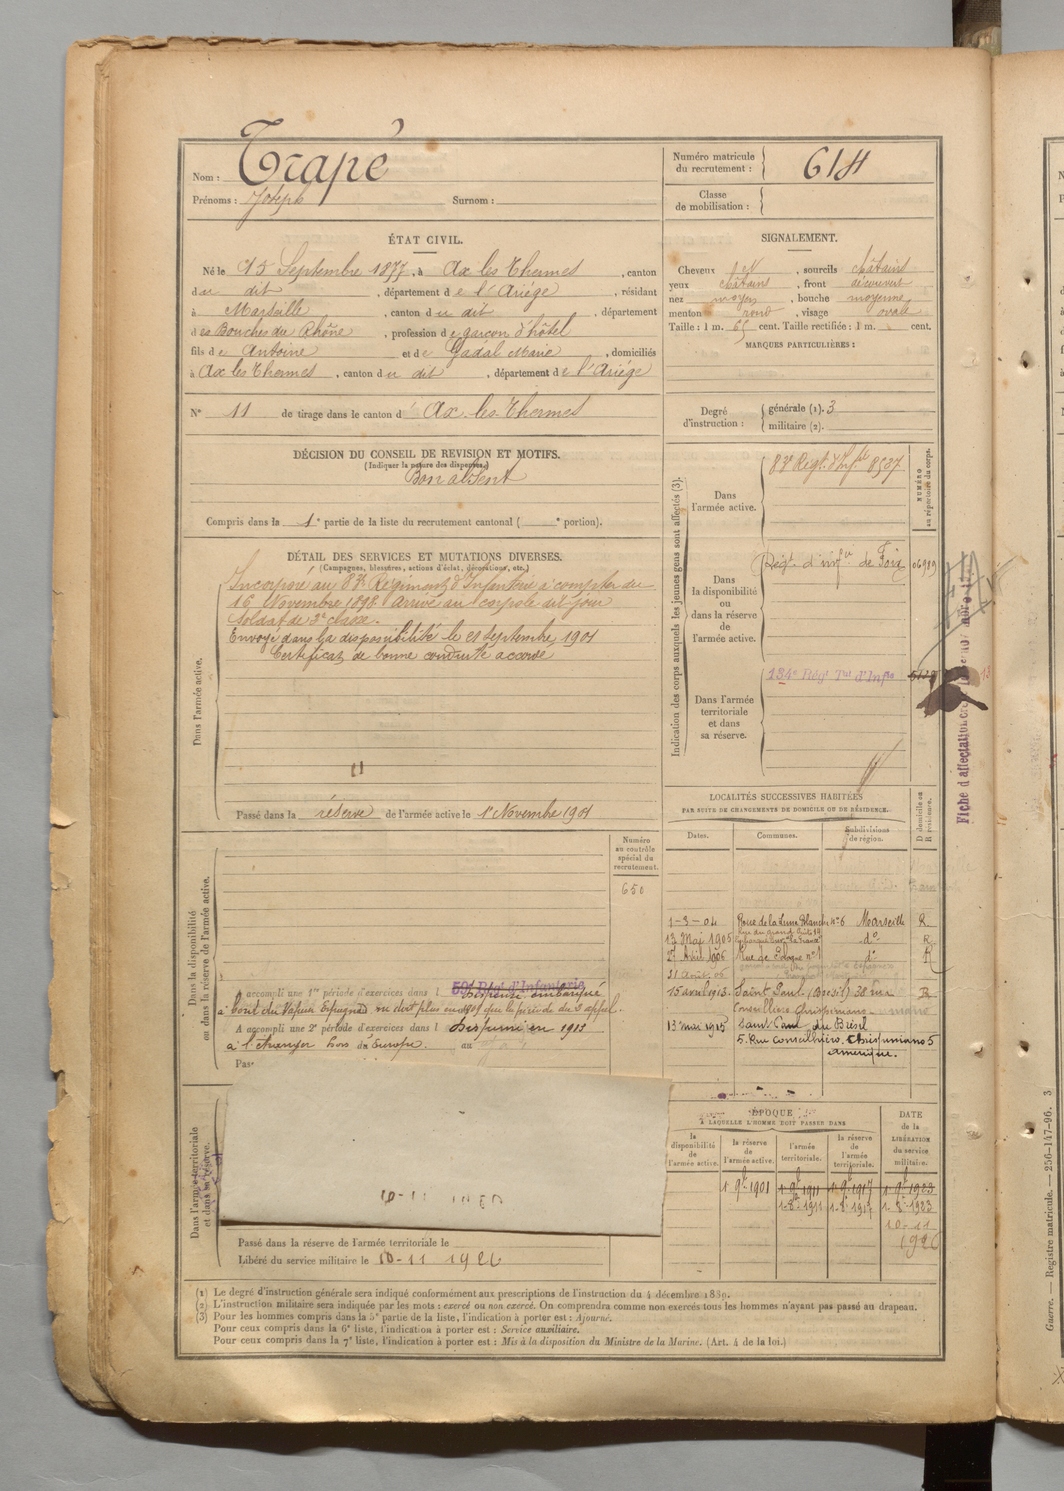 Nom : Trapé
Prénoms : Joseph Surnom :
Numéro matricule du recrutement : 614
Classe de mobilisation :
ÉTAT CIVIL.
Né le 15 Septembre 1877, à Ax les Thermes, canton
du dit, département de l'Ariége, résidant
à Marseille, canton du dit, département
des Bouches du Rhône, profession de garçon d'hôtel
fils de Antoine et de Gadal Marie, domiciliés
à Ax les Thermes, canton du dit, département de l'Ariége
N° 11 de tirage dans le canton d' Ax-les-Thermes
DÉCISION DU CONSEIL DE REVISION ET MOTIFS.
(Indiquer la nature des dispenses.)
Bon absent
Compris dans la 1e partie de la liste du recrutement cantonal ( e portion).
DÉTAIL DES SERVICES ET MUTATIONS DIVERSES.
(Campagnes, blessures, actions d'éclat, décorations, etc.)
Dans l'armée active.
Incorporé au 83e Régiment d'Infanterie à compter du
16 Novembre 1898 Arrivé au corps le dit jour
Soldat de 2e classe.
Envoyé dans la disponibilité le 21 Septembre 1901
Certificat de bonne conduite accordé
Passé dans la réserve de l'armée active le 1er Novembre 1901
Dans la disponibilité ou dans la réserve de l'armée active.
Numéro au contrôle spécial du recrutement.
650
59e Régt d'Infanterie
A accompli une 1re période d'exercices dans l Dispensé embarqué
à bord du Vapeur Espagnol ne doit plus que la période du 2e appel.
A accompli une 2e période d'exercices dans l Dispensé en 1911
à l'étranger hors du Europe. au
Pas
Dans l'armée territoriale et dans sa réserve.
Passé dans la réserve de l'armée territoriale le
Libéré du service militaire le 10-11 1926
SIGNALEMENT.
Cheveux , sourcils châtains
yeux châtains, front découvert
nez moyen, bouche moyenne
menton rond, visage ovale
Taille : 1 m. 65 cent. Taille rectifiée : 1 m. cent.
MARQUES PARTICULIÈRES :
Degré d'instruction : générale (1). 3
militaire (2).
Indication des corps auxquels les jeunes gens sont affectés (3).
NUMÉRO au répertoire du corps.
Dans l'armée active. 83e Régt. d'Infie 8537
Dans la disponibilité ou dans la réserve de l'armée active. Régt. d'infie de Foix 06989
Dans l'armée territoriale et dans sa réserve. 134e Régt Tal d'Infie
Fiche d'affectation
LOCALITÉS SUCCESSIVES HABITÉES
PAR SUITE DE CHANGEMENTS DE DOMICILE OU DE RÉSIDENCE.
Dates. Communes. Subdivisions de région. D domicile ou R résidence.
1-3-04 Roue de la Lune Blanche n° 6 Marseille R
13 Mai 1905 do R
27 Avril 1906 Rue de Cologne n° 1 do R
31 Août 06
15 avril 1913 Saint Paul (Brésil) 38 rua R
Conseilheiro Chrispiniano
13 mai 1915 Saint Paul du Brésil
5 Rue Conseilheiro Chrispiniano 5
Amérique.
ÉPOQUE
A LAQUELLE L'HOMME DOIT PASSER DANS
la disponibilité de l'armée active. la réserve de l'armée active. l'armée territoriale. la réserve de l'armée territoriale. DATE de la LIBÉRATION du service militaire.
1-9bre-1901 1-9bre-1911 1-9bre-1917 1-9bre-1923
1-8bre-1911 1-8bre-1917 1-8bre-1923
10-11
1926
(1) Le degré d'instruction générale sera indiqué conformément aux prescriptions de l'instruction du 4 décembre 1889.
(2) L'instruction militaire sera indiquée par les mots : exercé ou non exercé. On comprendra comme non exercés tous les hommes n'ayant pas passé au drapeau.
(3) Pour les hommes compris dans la 5e partie de la liste, l'indication à porter est : Ajourné.
Pour ceux compris dans la 6e liste, l'indication à porter est : Service auxiliaire.
Pour ceux compris dans la 7e liste, l'indication à porter est : Mis à la disposition du Ministre de la Marine. (Art. 4 de la loi.)
Guerre. — Registre matricule. — 256-147-96. 3